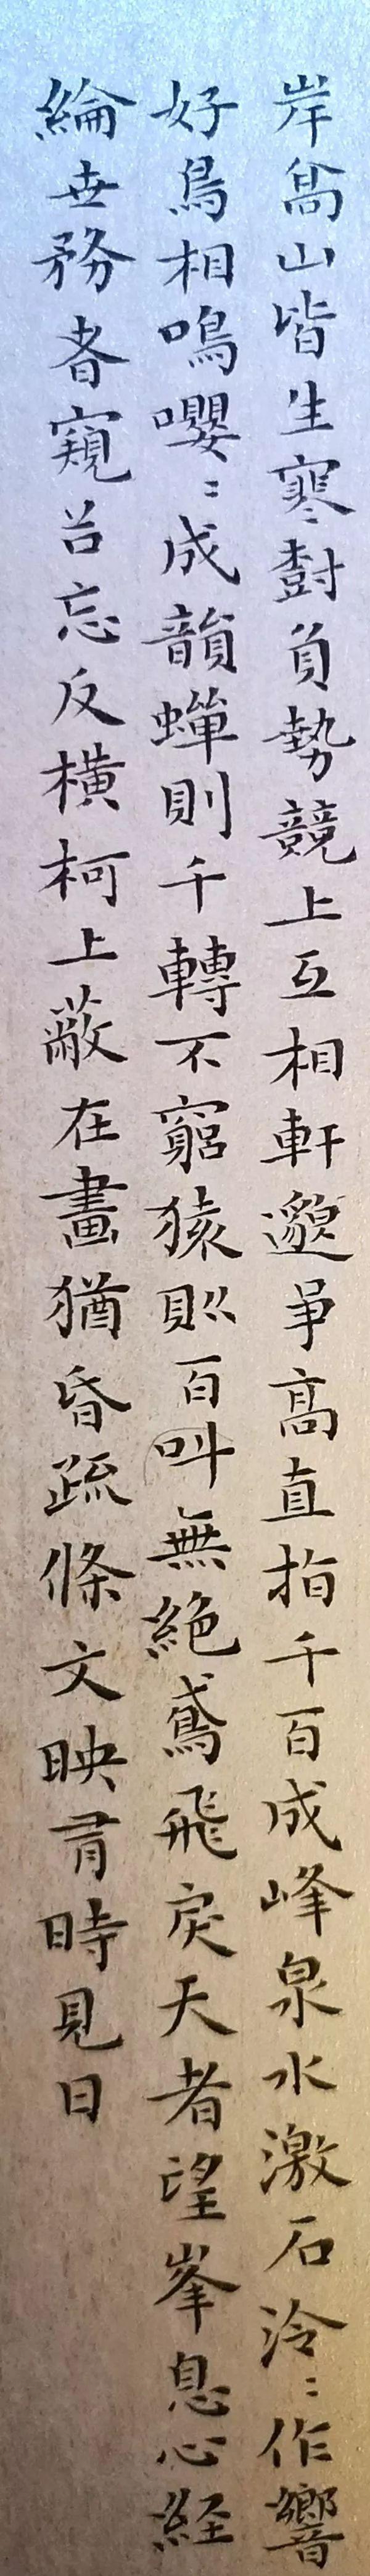 岸高山皆生寒對負勢競上互相軒邈爭高直指千百成峰泉水激石泠:作響
好鳥相鳴嚶:成韻蟬則千轉不窮猿則百叫無絕鳶飛戾天者望峯息心経
綸世務者窺谷忘反橫柯上蔽在晝猶昏疏條交映有時見日